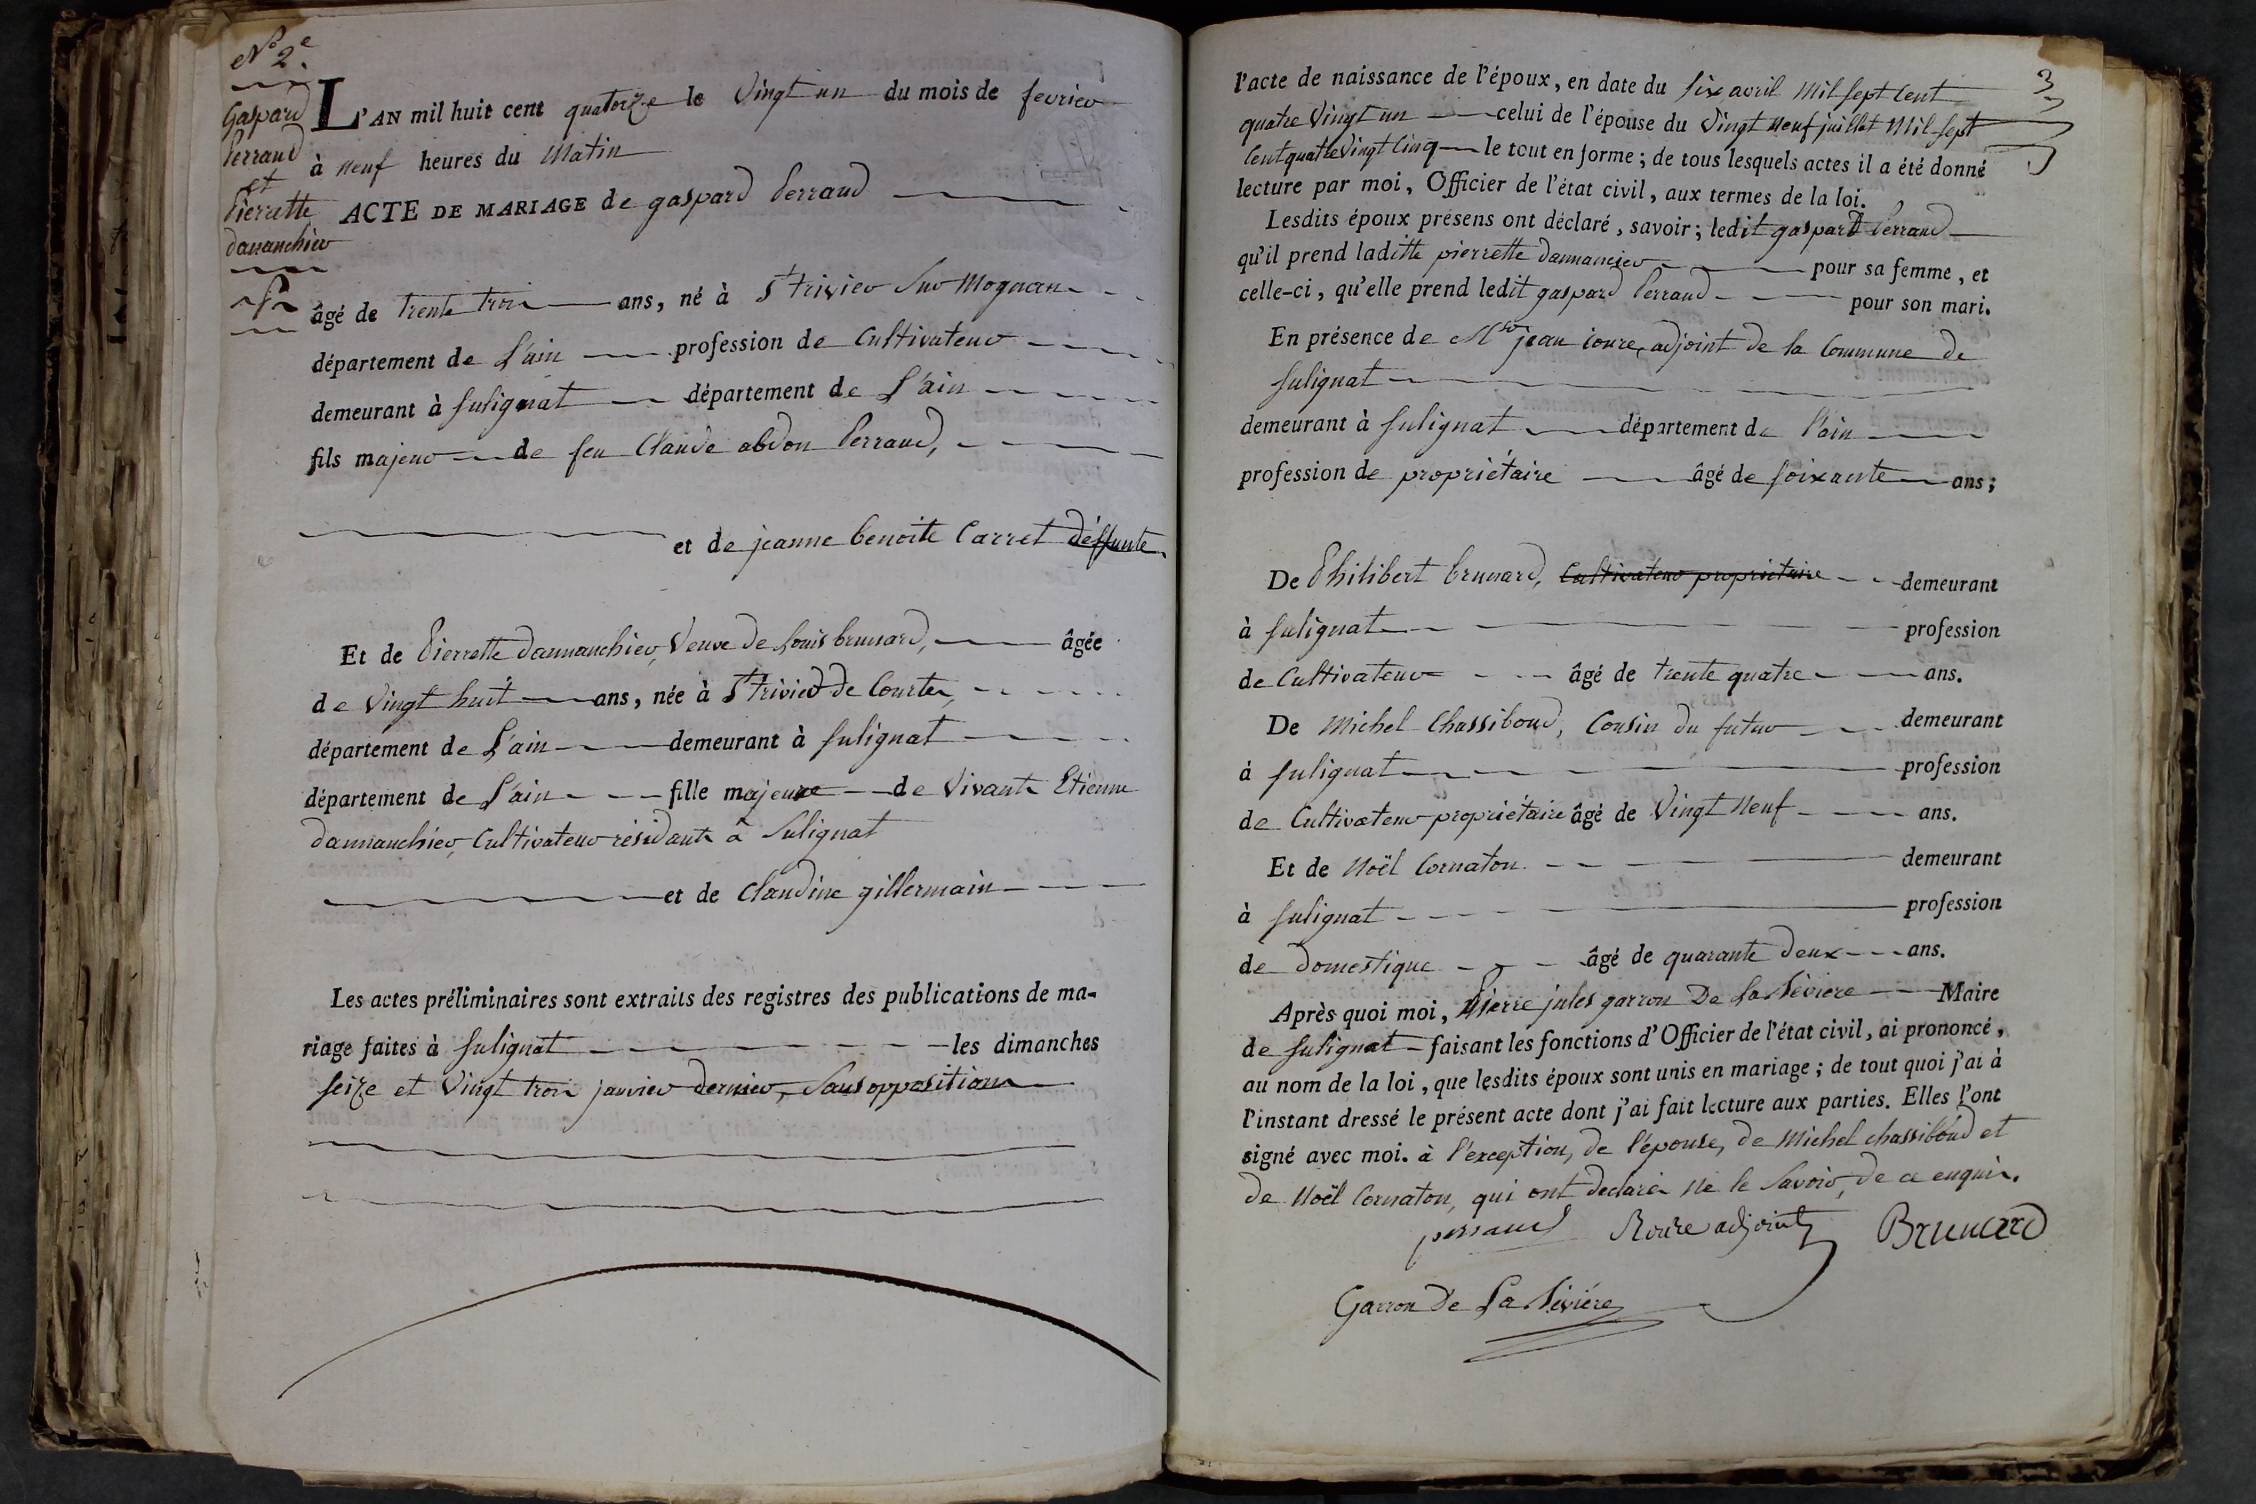 N° 2e
Gaspard
Perraud
et
Pierrette
dananchier
L'AN mil huit cent quatorze le vingt un du mois de fevrier
à neuf heures du Matin
ACTE DE MARIAGE de gaspard Perraud
âgé de trente trois ans, né à St trivier Sur Mognan
département de L'ain profession de Cultivateur
demeurant à Sulignat département de L'ain
fils majeur de feu Claude abdon Perraud,
et de jeanne benoite Carret déffunte
Et de Pierrette dannanchier, Veuve de Louis brunard, âgée
de Vingt huit ans, née à St trivier de Courtes,
département de L'ain demeurant à Sulignat
département de L'ain fille majeure de Vivant Etienne
dannanchier, Cultivateur résidant à Sulignat
et de Claudine gillermain
Les actes préliminaires sont extraits des registres des publications de ma-
riage faites à Sulignat les dimanches
seize et Vingt trois janvier dernier, Sans opposition
3
l'acte de naissance de l'époux, en date du Six avril Mil Sept Cent
quatre Vingt un celui de l'épouse du Vingt Neuf juillet Mil Sept
Cent quatre Vingt Cinq le tout en forme ; de tous lesquels actes il a été donné
lecture par moi, Officier de l'état civil, aux termes de la loi.
Lesdits époux présens ont déclaré, savoir ; ledit gaspard Perraud
qu'il prend laditte pierrette dannancier pour sa femme, et
celle-ci, qu'elle prend ledit gaspard Perraud pour son mari.
En présence de jean roure, adjoint de la Commune de
Sulignat
demeurant à Sulignat département de l'ain
profession de propriétaire âgé de Soixante ans ;
De Philibert brunard, Cultivateur propriétaire demeurant
à Sulignat profession
de Cultivateur âgé de trente quatre ans.
De Michel Chassiboud, Cousin du futur demeurant
à Sulignat profession
de Cultivateur propriétaire âgé de Vingt Neuf ans.
Et de Noël Cornaton demeurant
à Sulignat profession
de domestique âgé de quarante deux ans.
Après quoi moi, Pierre jules garron De La Bévière Maire
de Sulignat faisant les fonctions d'Officier de l'état civil, ai prononcé,
au nom de la loi, que lesdits époux sont unis en mariage ; de tout quoi j'ai à
l'instant dressé le présent acte dont j'ai fait lecture aux parties. Elles l'ont
signé avec moi. à l'exception, de l'épouse, de Michel chassiboud et
de Noël Cornaton, qui ont declarés ne le Savoir, de ce enquis.
perraud Roure adjoint Brunard
Garron De La Bévière